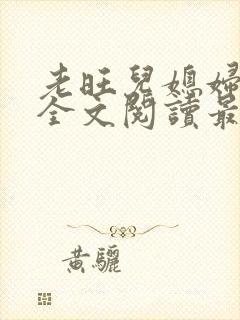 老旺兒媳婦
全文閱讀最
黃驪